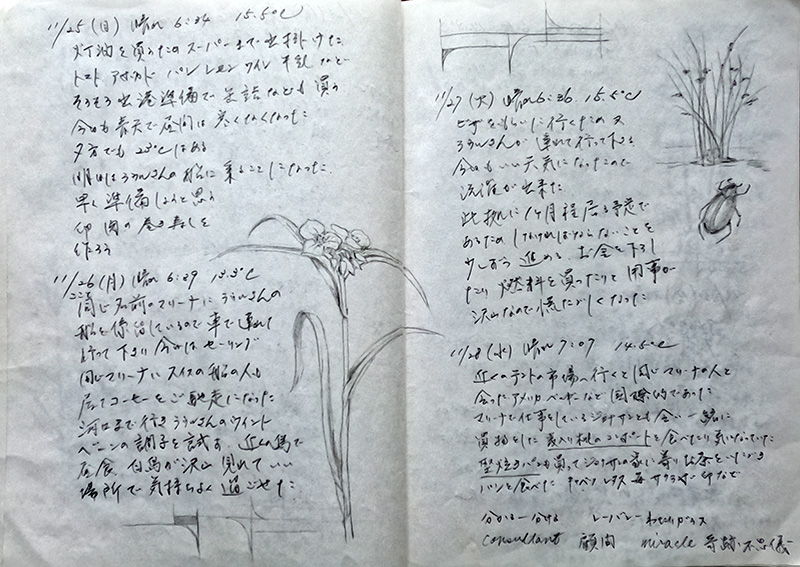 11/25(日) 晴れ 6:34 15.5℃
灯油を買うためスーパーまで出掛けた
トマト アボカド パン レモン ワイン 牛乳 など
そろそろ出港準備で缶詰なども買う
今日も晴天で昼間は寒くなくなった
夕方でも 23℃はある
明日は さんの船に乗ることになった
早く準備しようと思う
の巻き寿しを
作ろう
11/26(月) 晴れ 6:29 13.5℃
同じ名前のマリーナに さんの
船を係留しているので車で連れて
行って下さり 今日はセーリング
同じマリーナにスイスの船の人も
居てコーヒーをご馳走になった
河口まで行き さんのウィンド
ベーンの調子を試す。近くの島で
昼食。白鳥が沢山見れていい
場所で気持ちよく過ごせた
11/27(火) 晴れ 6:36 15.5℃
ビザをもらいに行くため又
さんが連れて行って下さる
今日もいい天気になったので
洗濯が出来た
此処に1ヶ月程居る予定で
あるため しなければならないことを
少しずつ進める。お金を下ろし
たり 燃料を買ったりと用事が
沢山なので慌ただしくなった
11/28(水) 晴れ 7:09 14.5℃
近くのテントの市場へ行くと同じマリーナの人と
会った アメリカ ベルギーなど国際的であった
マリーナで仕事をしている さんとも会い一緒に
買物をした 桃のコンポートを食べたり
堅焼きパンも買って の家に寄りお茶をいただき
パンと食べた レタス 苺 など
分かる－分ける
consultant 顧問 miracle 奇跡・不思議